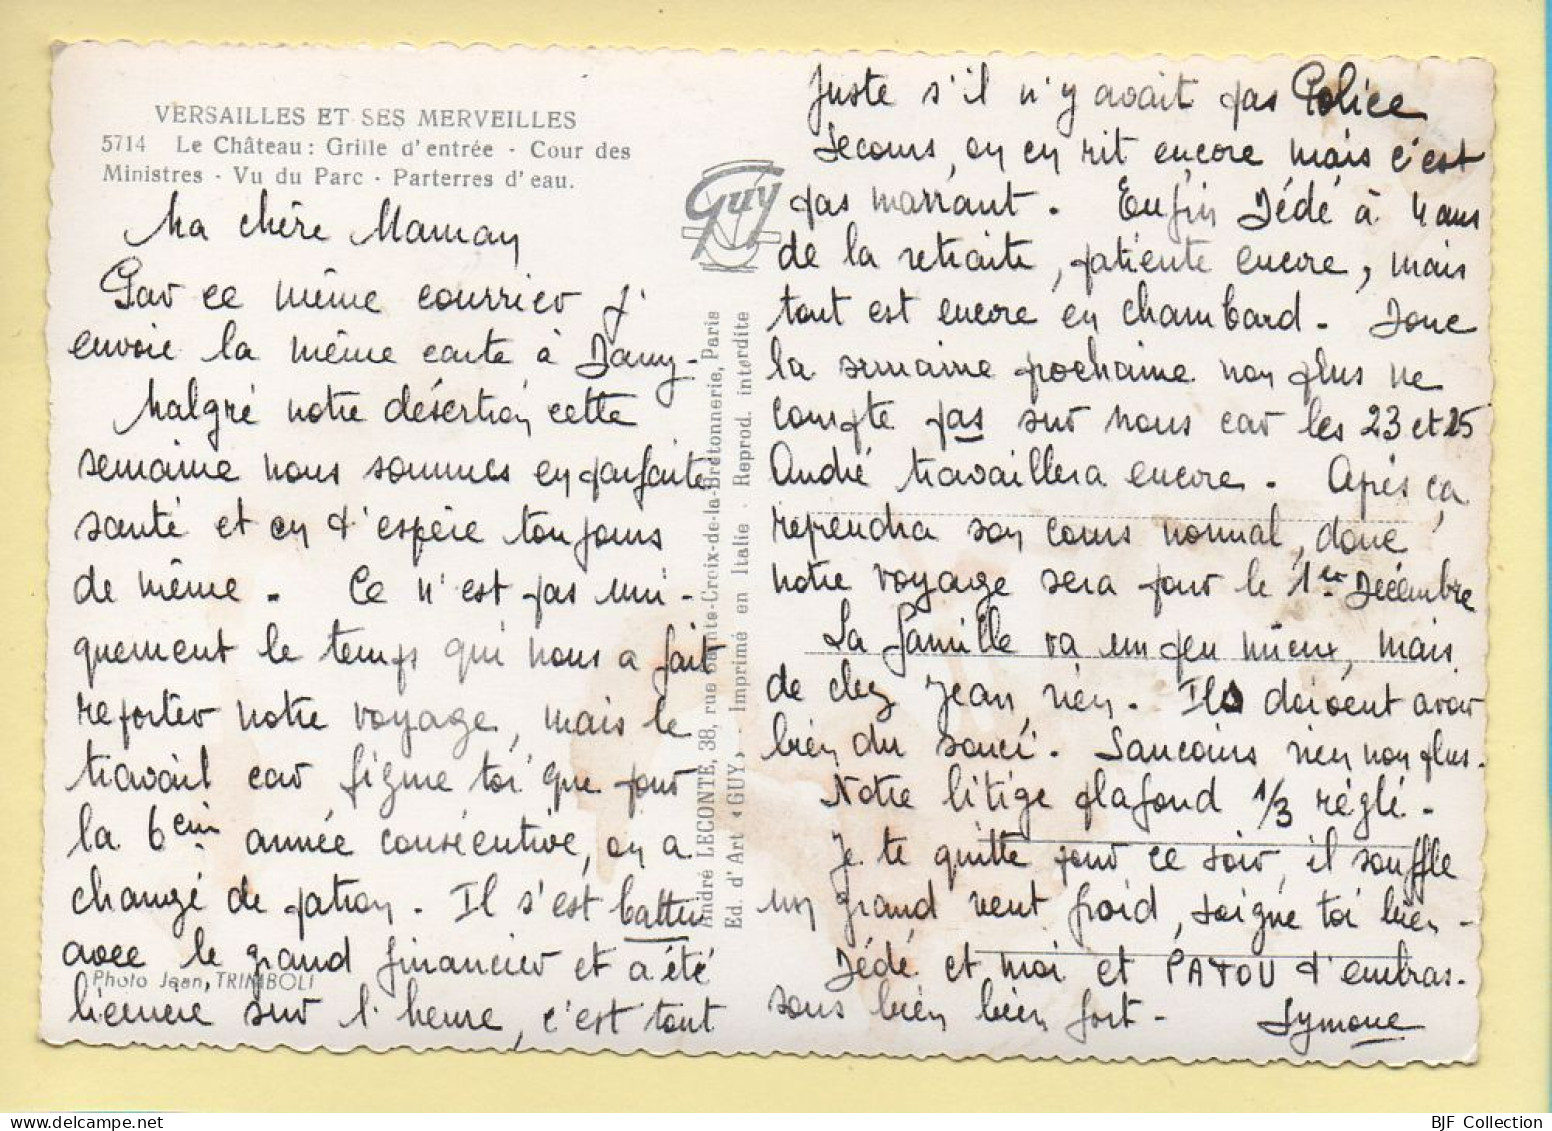 VERSAILLES ET SES MERVEILLES
5714 Le Château : Grille d'entrée - Cour des
Ministres - Vu du Parc - Parterres d'eau.
Ma chère Maman
Par ce même courrier j'
envoie la même carte à Dany -
Malgré notre désertion cette
semaine nous sommes en parfaite
santé et en t'espère toujours
de même. Ce n'est pas uni-
quement le temps qui nous a fait
reporter notre voyage, mais le
travail car figure toi que pour
la 6em année consécutive, on a
changé de patron. Il s'est battu
avec le grand financier et a été
Photo Jean, TRIMBOLI
licencié sur l'heure, c'est tout
Guy
André LECONTE, 38, rue Sainte-Croix-de-la-Bretonnerie, Paris
Ed. d'Art « GUY » - Imprimé en Italie - Reprod. interdite
juste s'il n'y avait pas Police
Secours, on en rit encore mais c'est
pas marrant. Enfin Dédé à 4 ans
de la retraite, patiente encore, mais
tout est encore en chambard. Donc
la semaine prochaine non plus ne
compte pas sur nous car les 23 et 25
André travaillera encore. Après ça
reprendra son cours normal, donc
notre voyage sera pour le 1er Décembre
La famille va un peu mieux, mais
de chez Jean, rien. Ils doivent avoir
bien du souci. Saucoins rien non plus.
Notre litige plafond 1/3 réglé.
Je te quitte pour ce soir, il souffle
un grand vent froid, soigne toi bien -
Dédé et moi et PATOU t'embras-
sons bien bien fort - Symone
BJF Collection